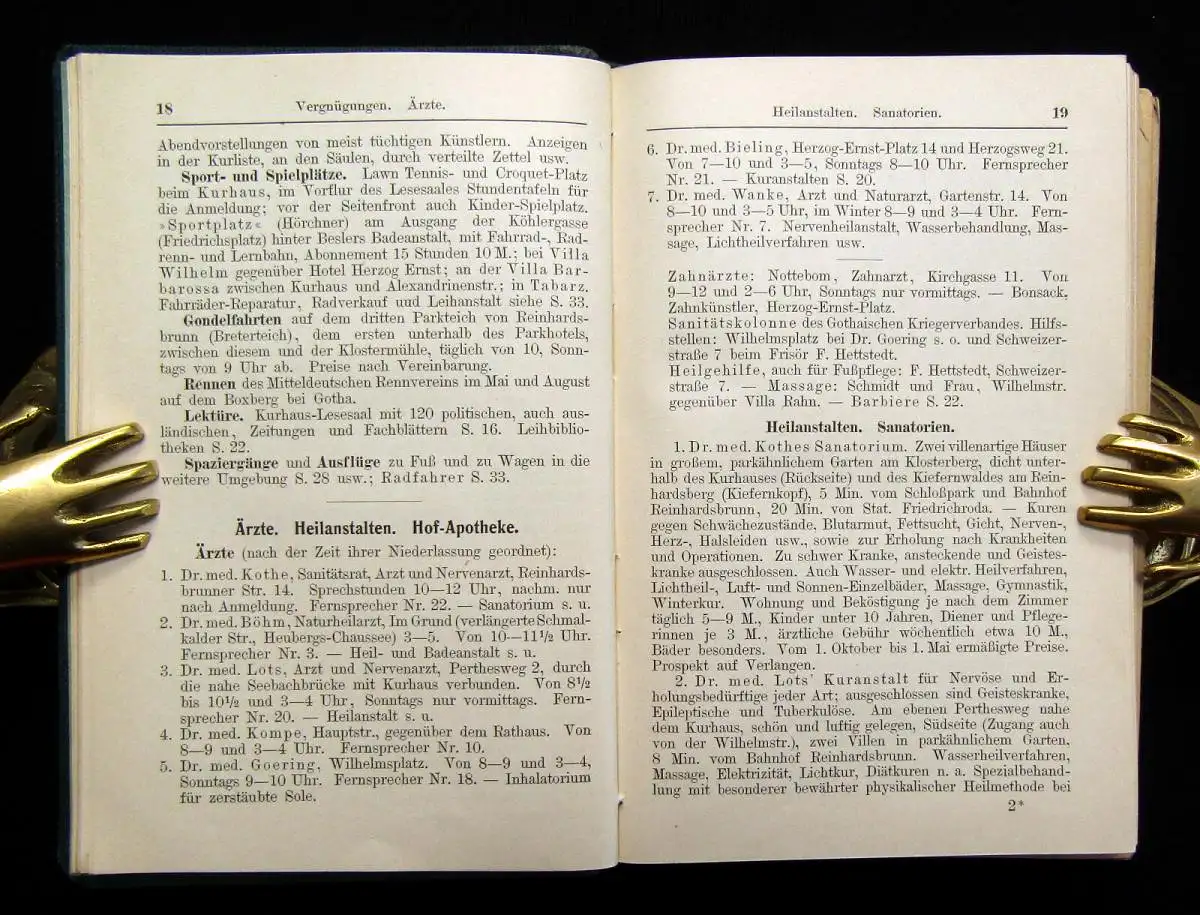 18 Vergnügungen. Ärzte.
Abendvorstellungen von meist tüchtigen Künstlern. Anzeigen
in der Kurliste, an den Säulen, durch verteilte Zettel usw.
Sport- und Spielplätze. Lawn Tennis- und Croquet-Platz
beim Kurhaus, im Vorflur des Lesesaales Stundentafeln für
die Anmeldung; vor der Seitenfront auch Kinder-Spielplatz.
»Sportplatz« (Hörchner) am Ausgang der Köhlergasse
(Friedrichsplatz) hinter Beslers Badeanstalt, mit Fahrrad-, Rad-
renn- und Lernbahn, Abonnement 15 Stunden 10 M.; bei Villa
Wilhelm gegenüber Hotel Herzog Ernst; an der Villa Bar-
barossa zwischen Kurhaus und Alexandrinenstr.; in Tabarz.
Fahrräder-Reparatur, Radverkauf und Leihanstalt siehe S. 33.
Gondelfahrten auf dem dritten Parkteich von Reinhards-
brunn (Breterteich), dem ersten unterhalb des Parkhotels,
zwischen diesem und der Klostermühle, täglich von 10, Sonn-
tags von 9 Uhr ab. Preise nach Vereinbarung.
Rennen des Mitteldeutschen Rennvereins im Mai und August
auf dem Boxberg bei Gotha.
Lektüre. Kurhaus-Lesesaal mit 120 politischen, auch aus-
ländischen, Zeitungen und Fachblättern S. 16. Leihbiblio-
theken S. 22.
Spaziergänge und Ausflüge zu Fuß und zu Wagen in die
weitere Umgebung S. 28 usw.; Radfahrer S. 33.
Ärzte. Heilanstalten. Hof-Apotheke.
Ärzte (nach der Zeit ihrer Niederlassung geordnet):
1. Dr. med. Kothe, Sanitätsrat, Arzt und Nervenarzt, Reinhards-
brunner Str. 14. Sprechstunden 10—12 Uhr, nachm. nur
nach Anmeldung. Fernsprecher Nr. 22. — Sanatorium s. u.
2. Dr. med. Böhm, Naturheilarzt, Im Grund (verlängerte Schmal-
kalder Str., Heubergs-Chaussee) 3—5. Von 10—11½ Uhr.
Fernsprecher Nr. 3. — Heil- und Badeanstalt s. u.
3. Dr. med. Lots, Arzt und Nervenarzt, Perthesweg 2, durch
die nahe Seebachbrücke mit Kurhaus verbunden. Von 8½
bis 10½ und 3—4 Uhr, Sonntags nur vormittags. Fern-
sprecher Nr. 20. — Heilanstalt s. u.
4. Dr. med. Kompe, Hauptstr., gegenüber dem Rathaus. Von
8—9 und 3—4 Uhr. Fernsprecher Nr. 10.
5. Dr. med. Goering, Wilhelmsplatz. Von 8—9 und 3—4,
Sonntags 9—10 Uhr. Fernsprecher Nr. 18. — Inhalatorium
für zerstäubte Sole.
Heilanstalten. Sanatorien. 19
6. Dr. med. Bieling, Herzog-Ernst-Platz 14 und Herzogsweg 21.
Von 7—10 und 3—5, Sonntags 8—10 Uhr. Fernsprecher
Nr. 21. — Kuranstalten S. 20.
7. Dr. med. Wanke, Arzt und Naturarzt, Gartenstr. 14. Von
8—10 und 3—5 Uhr, im Winter 8—9 und 3—4 Uhr. Fern-
sprecher Nr. 7. Nervenheilanstalt, Wasserbehandlung, Mas-
sage, Lichtheilverfahren usw.
Zahnärzte: Nottebom, Zahnarzt, Kirchgasse 11. Von
9—12 und 2—6 Uhr, Sonntags nur vormittags. — Bonsack,
Zahnkünstler, Herzog-Ernst-Platz.
Sanitätskolonne des Gothaischen Kriegerverbandes. Hilfs-
stellen: Wilhelmsplatz bei Dr. Goering s. o. und Schweizer-
straße 7 beim Frisör F. Hettstedt.
Heilgehilfe, auch für Fußpflege: F. Hettstedt, Schweizer-
straße 7. — Massage: Schmidt und Frau, Wilhelmstr.
gegenüber Villa Rahn. — Barbiere S. 22.
Heilanstalten. Sanatorien.
1. Dr. med. Kothes Sanatorium. Zwei villenartige Häuser
in großem, parkähnlichem Garten am Klosterberg, dicht unter-
halb des Kurhauses (Rückseite) und des Kiefernwaldes am Rein-
hardsberg (Kiefernkopf), 5 Min. vom Schloßpark und Bahnhof
Reinhardsbrunn, 20 Min. von Stat. Friedrichroda. — Kuren
gegen Schwächezustände, Blutarmut, Fettsucht, Gicht, Nerven-,
Herz-, Halsleiden usw., sowie zur Erholung nach Krankheiten
und Operationen. Zu schwer Kranke, ansteckende und Geistes-
kranke ausgeschlossen. Auch Wasser- und elektr. Heilverfahren,
Lichtheil-, Luft- und Sonnen-Einzelbäder, Massage, Gymnastik,
Winterkur. Wohnung und Beköstigung je nach dem Zimmer
täglich 5—9 M., Kinder unter 10 Jahren, Diener und Pflege-
rinnen je 3 M., ärztliche Gebühr wöchentlich etwa 10 M.,
Bäder besonders. Vom 1. Oktober bis 1. Mai ermäßigte Preise.
Prospekt auf Verlangen.
2. Dr. med. Lots' Kuranstalt für Nervöse und Er-
holungsbedürftige jeder Art; ausgeschlossen sind Geisteskranke,
Epileptische und Tuberkulöse. Am ebenen Perthesweg nahe
dem Kurhaus, schön und luftig gelegen, Südseite (Zugang auch
von der Wilhelmstr.), zwei Villen in parkähnlichem Garten,
8 Min. vom Bahnhof Reinhardsbrunn. Wasserheilverfahren,
Massage, Elektrizität, Lichtkur, Diätkuren n. a. Spezialbehand-
lung mit besonderer bewährter physikalischer Heilmethode bei
2*